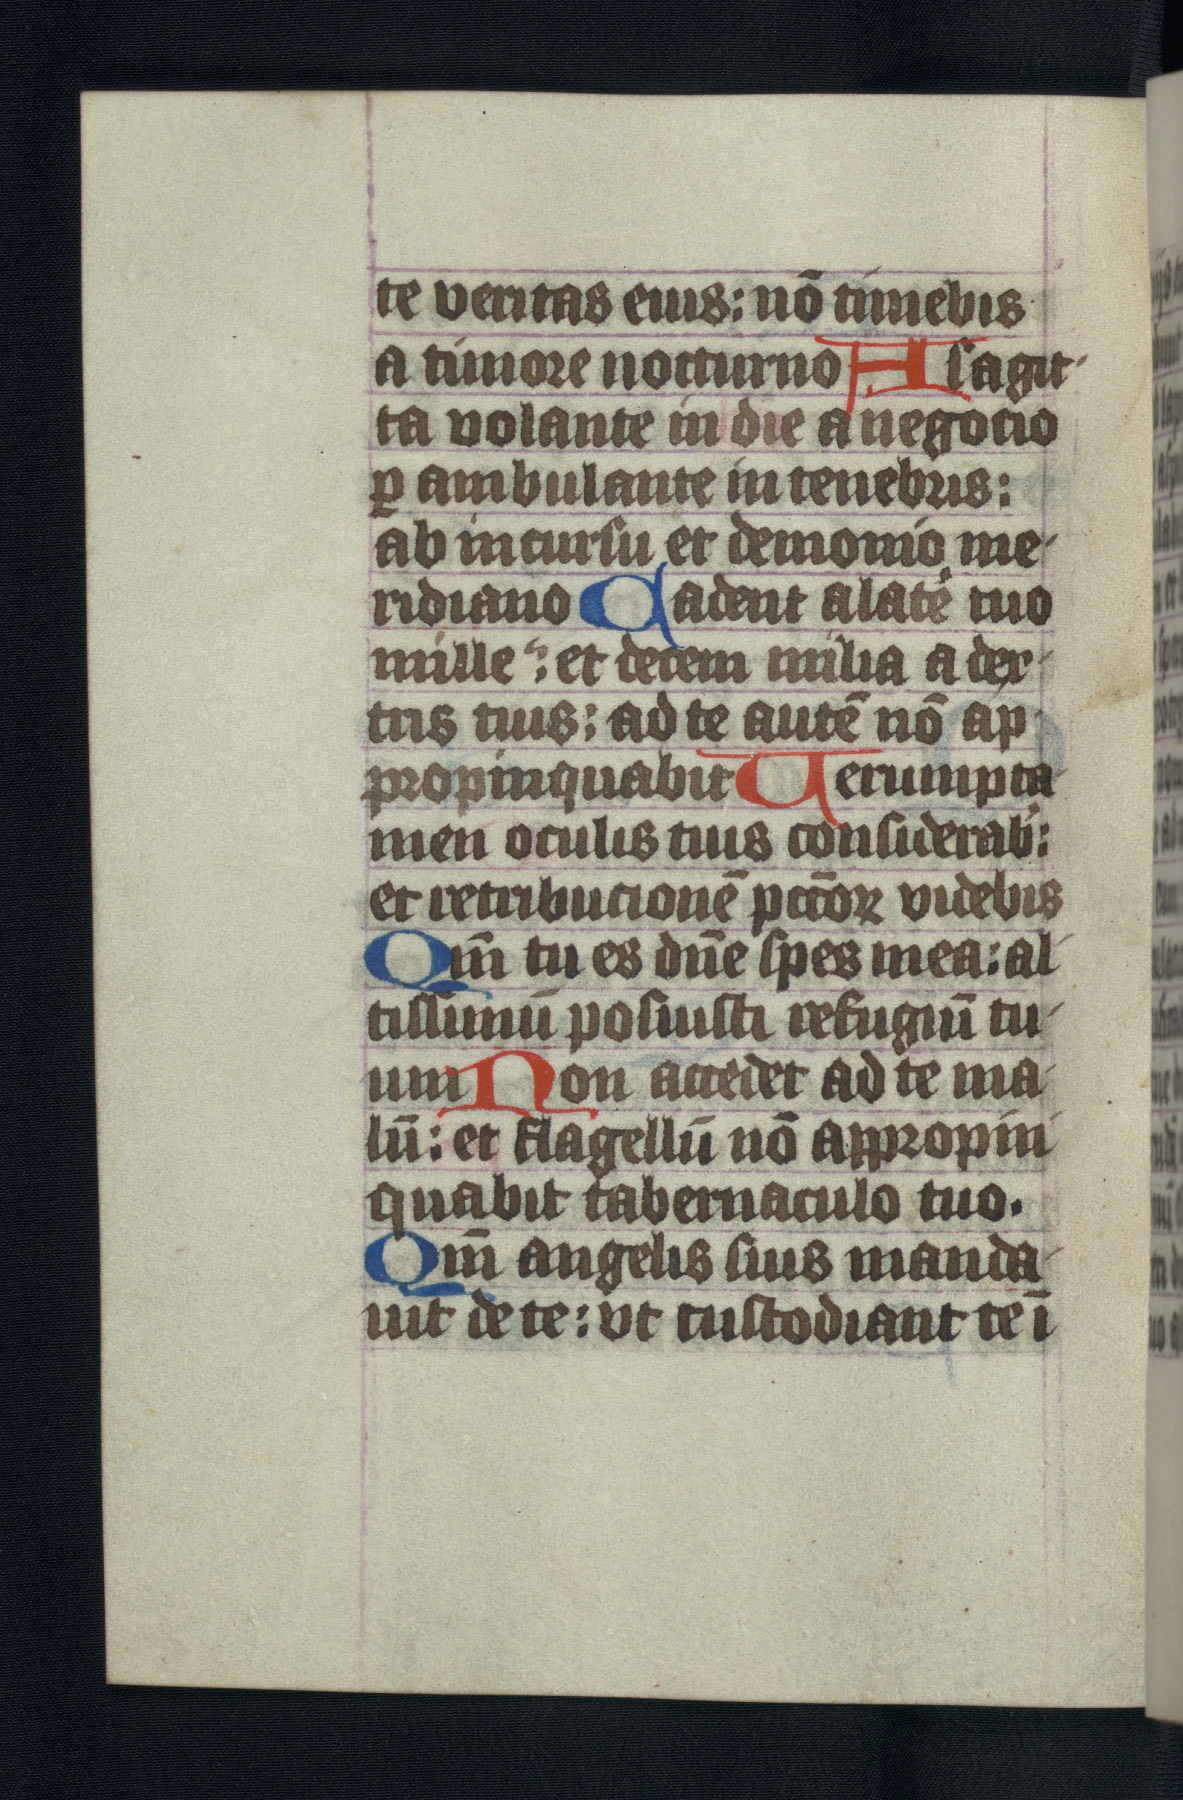 te veritas eius: nō timebis
a timore nocturno A sagit-
ta volante in die a negocio
ꝑ ambulante in tenebris:
ab incursu et demonio me-
ridiano Cadent a latē tuo
mille: et decem milia a dex-
tris tuis: ad te autē nō ap
propinquabit Verumpta-
men oculis tuis considerab:
et retribucionē pcc̄oꝝ videbis
Qm̄ tu es dn̄e spes mea: al-
tissimū posuisti refugiū tu-
um Non accedet ad te ma-
lū: et flagellū nō appropin
quabit tabernaculo tuo.
Qm̄ angelis suis manda-
uit de te: vt custodiant te ī